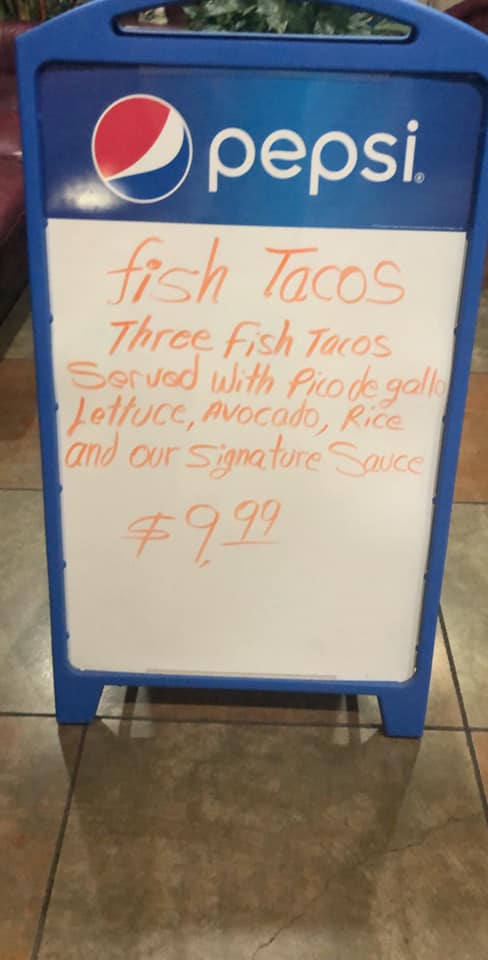 pepsi
fish Tacos
Three fish Tacos
Served with Pico de gallo
Lettuce, Avocado, Rice
and our Signature Sauce
$9.99